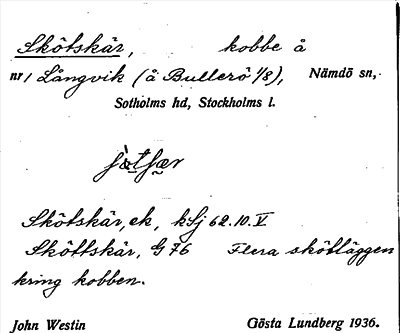 Skötskär, kobbe å
nr 1 Långvik (å Bullerö 1/8), Nämdö sn,
Sotholms hd, Stockholms l.
Skötskär, ek, ksj 62.10.V
Sköttskär, G 76 Flera skötläggen
kring kobben.
John Westin Gösta Lundberg 1936.